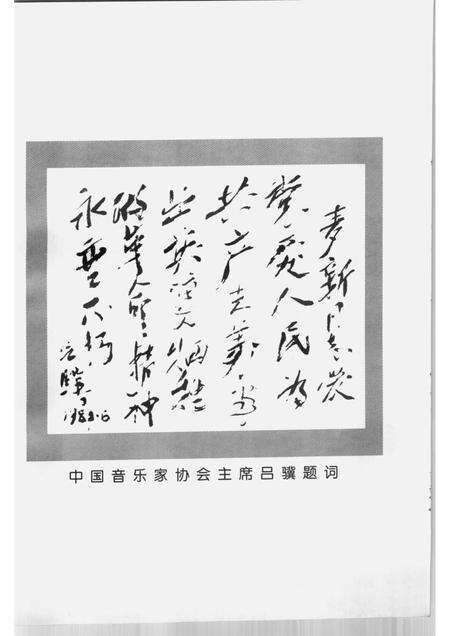 麦新同志爱
党爱人民为
共产主义事
业英勇牺牲
的革命精神
永垂不朽
吕骥
中国音乐家协会主席吕骥题词